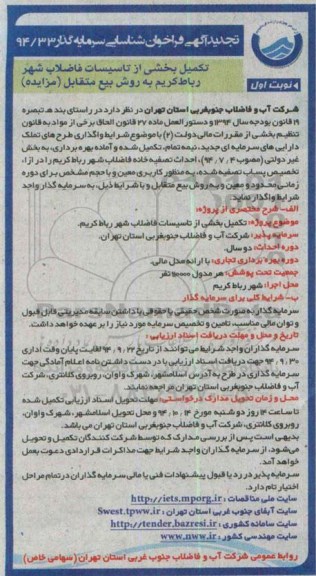 تجدیدآگهی فراخوان شناسایی سرمایه گذار ۹۴/۳۳
تکمیل بخشی از تاسیسات فاضلاب شهر
رباط کریم به روش بیع متقابل (مزایده)
نوبت اول
شرکت آب و فاضلاب جنوبغربی استان تهران در نظر دارد در راستای بند هـ تبصره
۱۹ قانون بودجه سال ۱۳۹۴ و دستور العمل ماده ۲۷ قانون الحاق برخی از مواد به قانون
تنظیم بخشی از مقررات مالی دولت (۲) با موضوع شرایط واگذاری طرح های تملک
دارایی های سرمایه ای جدید، نیمه تمام، تکمیل شده و آماده بهره برداری، به بخش
غیر دولتی (مصوب ۹۴،۷،۴)، احداث تصفیه خانه فاضلاب شهر رباط کریم را در ازاء
تخصیص پساب تصفیه شده، به منظور کاربری معین و با حجم مشخص برای دوره
زمانی محدود و معین و به روش بیع متقابل و با شرایط ذیل، به سرمایه گذار واجد
شرایط واگذار نماید.
الف- شرح مختصری از پروژه:
موضوع پروژه: تکمیل بخشی از تاسیسات فاضلاب شهر رباط کریم.
سرمایه پذیر: شرکت آب و فاضلاب جنوبغربی استان تهران.
دوره احداث: دو سال.
دوره بهره برداری تجاری: با ارائه مدل مالی.
جمعیت تحت پوشش: هر مدول نفر
محل اجرا: شهر رباط کریم
ب- شرایط کلی برای سرمایه گذار
سرمایه گذار به صورت شخص حقیقی یا حقوقی با داشتن سابقه مدیریتی قابل قبول
و توان مالی مناسب، تامین و تخصیص سرمایه مورد نیاز را بر عهده خواهد داشت.
تاریخ و محل و مهلت دریافت اسناد ارزیابی:
سرمایه گذاران واجد شرایط می توانند از تاریخ ۹۴،۹،۲۲ لغایت پایان وقت اداری
۹۴،۹،۳۰ جهت دریافت اسناد ارزیابی با در دست داشتن نامه اعلام آمادگی جهت
سرمایه گذاری در طرح به آدرس اسلامشهر، شهرک واوان، روبروی کلانتری، شرکت
آب و فاضلاب جنوبغربی استان تهران مراجعه نمایند.
محل و زمان تحویل مدارک درخواستی: مهلت تحویل اسناد ارزیابی تکمیل شده
تا ساعت ۱۴ روز دوشنبه مورخ ۹۴،۱۰،۱۴ و محل تحویل اسلامشهر، شهرک واوان،
روبروی کلانتری، شرکت آب و فاضلاب جنوب غربی استان تهران می باشد.
بدیهی است پس از بررسی مدارک که توسط شرکت کنندگان تکمیل و تحویل
می شود، از سرمایه گذاران واجد شرایط جهت مذاکرات قرار دادی دعوت بعمل
خواهد آمد.
سرمایه پذیر در رد یا قبول پیشنهادات فنی یا مالی سرمایه گذاران در تمام مراحل
اختیار تام دارد.
سایت ملی مناقصات : http://iets.mporg.ir
سایت آبفای جنوب غربی استان تهران : Swest.tpww.ir
سایت سامانه کشوری : http://tender.bazresi.ir
سایت مهندسی کشور : www.nww.ir
روابط عمومی شرکت آب و فاضلاب جنوب غربی استان تهران (سهامی خاص)